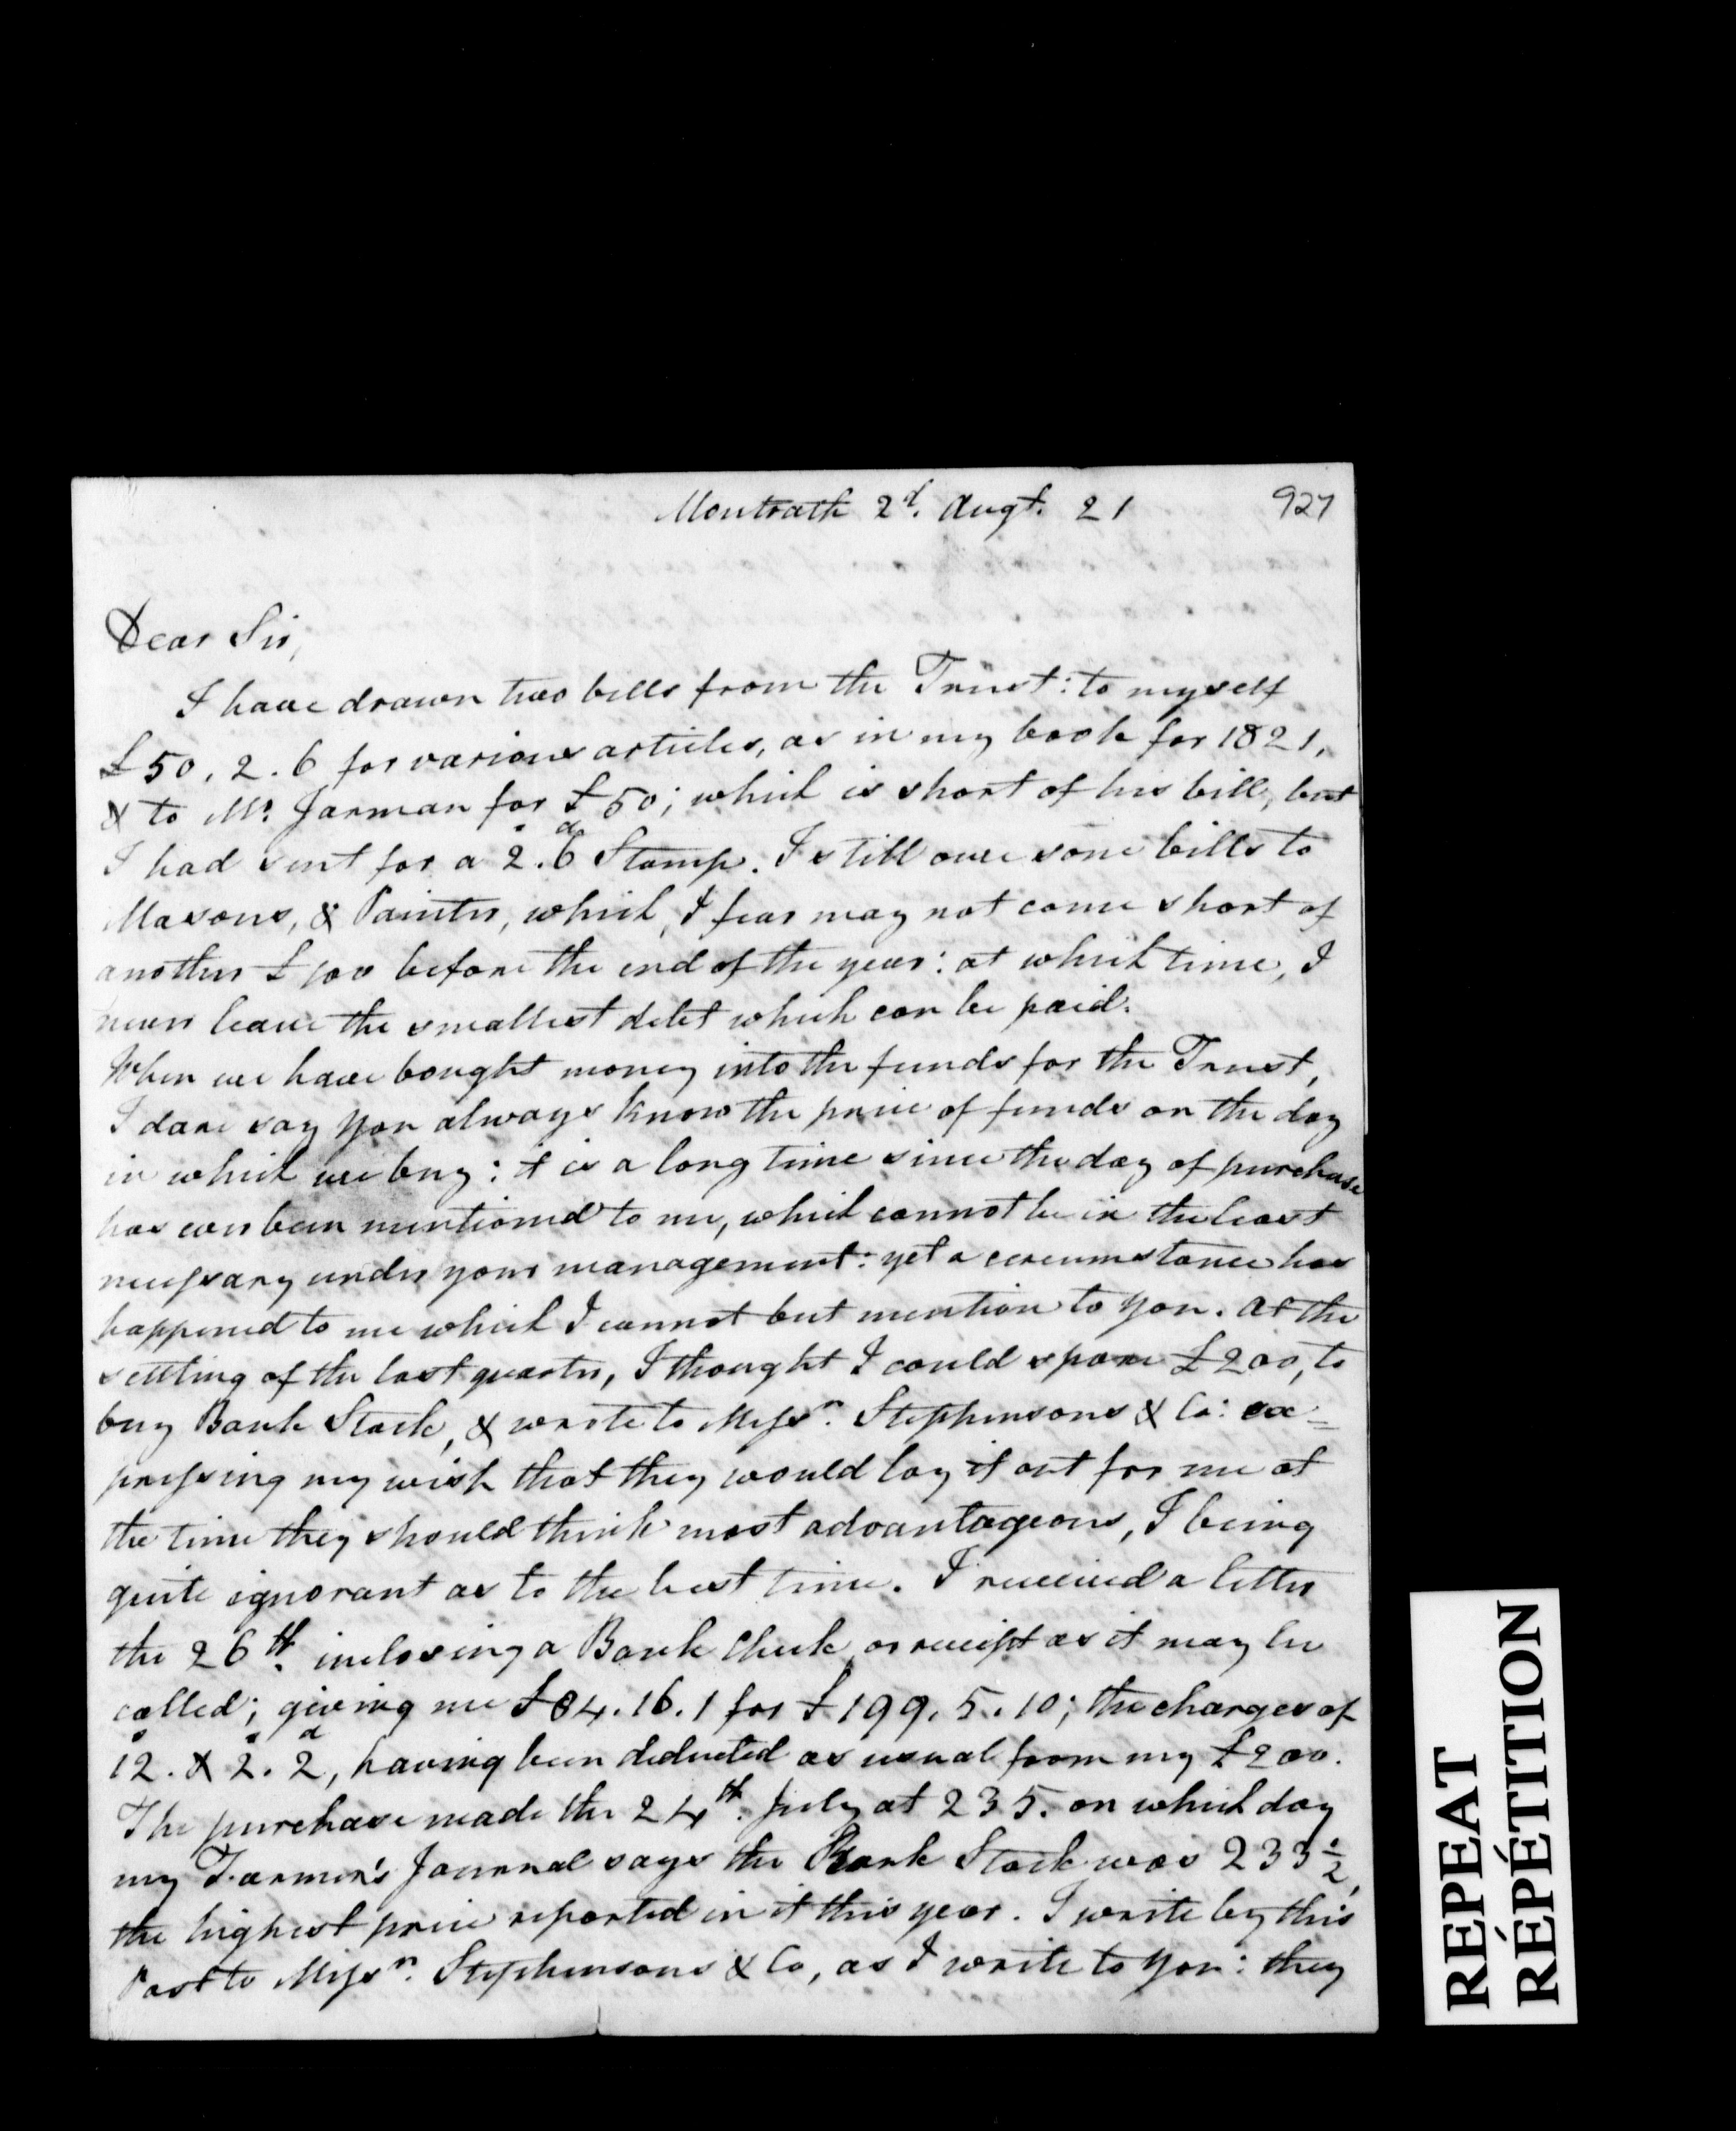 Montrath 2d. Augt. 21
927
Dear Sir,
I have drawn two bills from the Trust: to myself
£50. 2. 6 for various articles, as in my book for 1821,
& to Mr. Jarman for £50; which is short of his bill, but
I had sent for a 2s. 6d Stamp. I still owe some bills to
Masons, & Painter, which, I fear may not come short of
another £100 before the end of the year: at which time, I
never leave the smallest debt which can be paid.
When we have bought money into the funds for the Trust,
I dare say you always know the price of funds on the day
in which we buy: it is a long time since the day of purchase
has ever been mentioned to me, which cannot be in the least
necessary under your management: yet a circumstance has
happened to me which I cannot but mention to you. At the
settling of the last quarter, I thought I could spare £200, to
buy Bank Stock, & wrote to Messrs. Stephensons & Co: ex=
pressing my wish that they would lay it out for me at
the time they should think most advantageous, I being
quite ignorant as to the best time. I received a letter
the 26th. inclosing a Bank Check, or receipt as it may be
called; giving me £84. 16. 1 for £199. 5. 10; the charges of
12s. & 2s. 2d, having been deducted as usual from my £200.
The purchase made the 24th. July at 235. on which day
my Farmer's Journal says the Bank Stock was 233 1/2,
the highest price reported in it this year. I write by this
Post to Messrs. Stephensons & Co, as I write to you: they
REPEAT
RÉPÉTITION